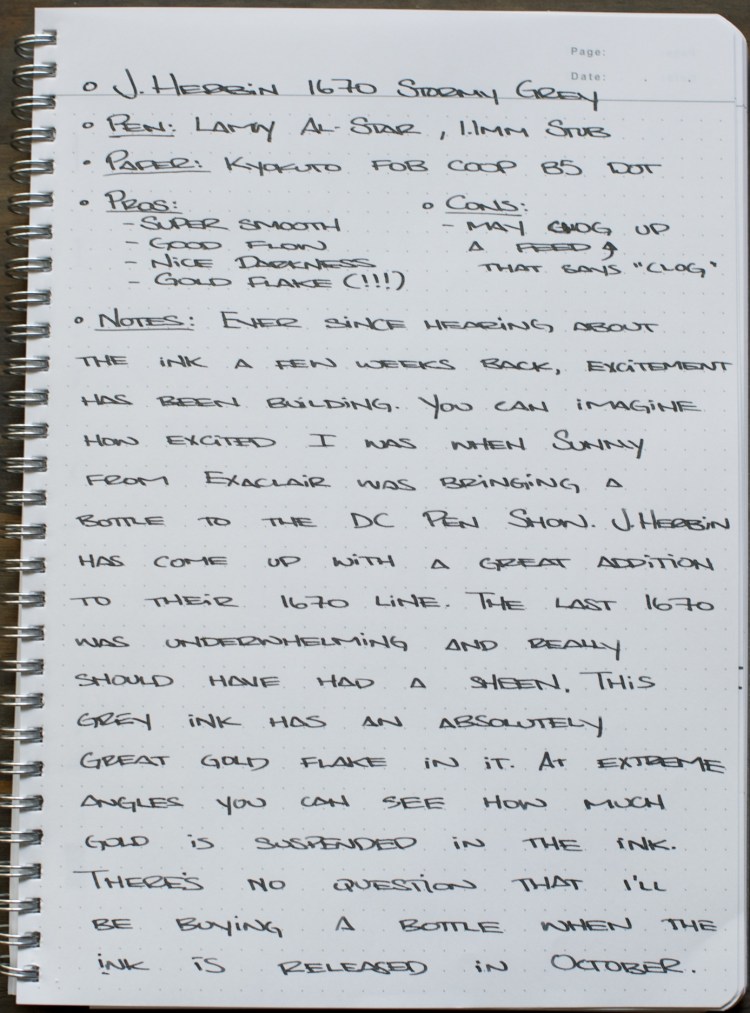 Page:
Date:
J. Herbin 1670 Stormy Grey
Pen: Lamy Al-Star, 1.1mm Stub
Paper: Kyokuto FOB COOP B5 Dot
Pros:
- Super smooth
- Good flow
- Nice darkness
- Gold flake (!!!)
Cons:
- May clog up
a feed ↑
that says "clog"
Notes: Ever since hearing about
the ink a few weeks back, excitement
has been building. You can imagine
how excited I was when Sunny
from Exaclair was bringing a
bottle to the DC Pen Show. J. Herbin
has come up with a great addition
to their 1670 line. The last 1670
was underwhelming and really
should have had a sheen. This
grey ink has an absolutely
great gold flake in it. At extreme
angles you can see how much
gold is suspended in the ink.
There's no question that I'll
be buying a bottle when the
ink is released in October.